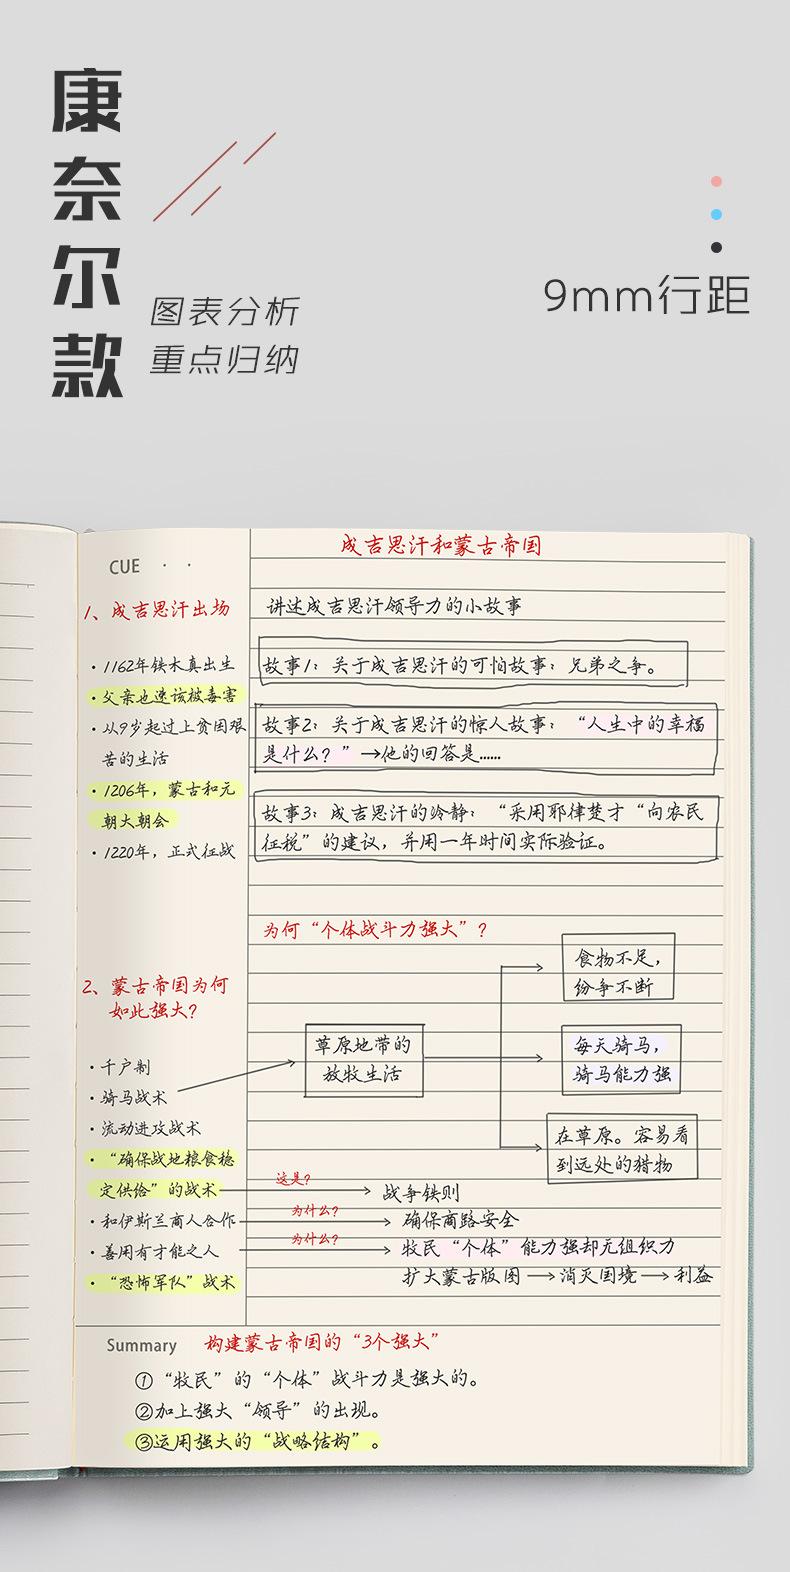 康奈尔款
图表分析
重点归纳
9mm行距
CUE
成吉思汗和蒙古帝国
1、成吉思汗出场
·1162年铁木真出生
·父亲也速该被毒害
·从9岁起过上贫困艰
苦的生活
·1206年，蒙古和元
朝大朝会
·1220年，正式征战
讲述成吉思汗领导力的小故事
故事1：关于成吉思汗的可怕故事：兄弟之争。
故事2：关于成吉思汗的惊人故事：“人生中的幸福
是什么？”→他的回答是……
故事3：成吉思汗的冷静：“采用耶律楚才“向农民
征税”的建议，并用一年时间实际验证。
2、蒙古帝国为何
如此强大？
·千户制
·骑马战术
·流动进攻战术
·“确保战地粮食稳
定供给”的战术
·和伊斯兰商人合作
·善用有才能之人
·“恐怖军队”战术
为何“个体战斗力强大”？
草原地带的
放牧生活
食物不足，
纷争不断
每天骑马，
骑马能力强
在草原。容易看
到远处的猎物
这是？
战争铁则
为什么？
确保商路安全
为什么？
牧民“个体”能力强却无组织力
扩大蒙古版图→消灭国境→利益
Summary
构建蒙古帝国的“3个强大”
①“牧民”的“个体”战斗力是强大的。
②加上强大“领导”的出现。
③运用强大的“战略结构”。